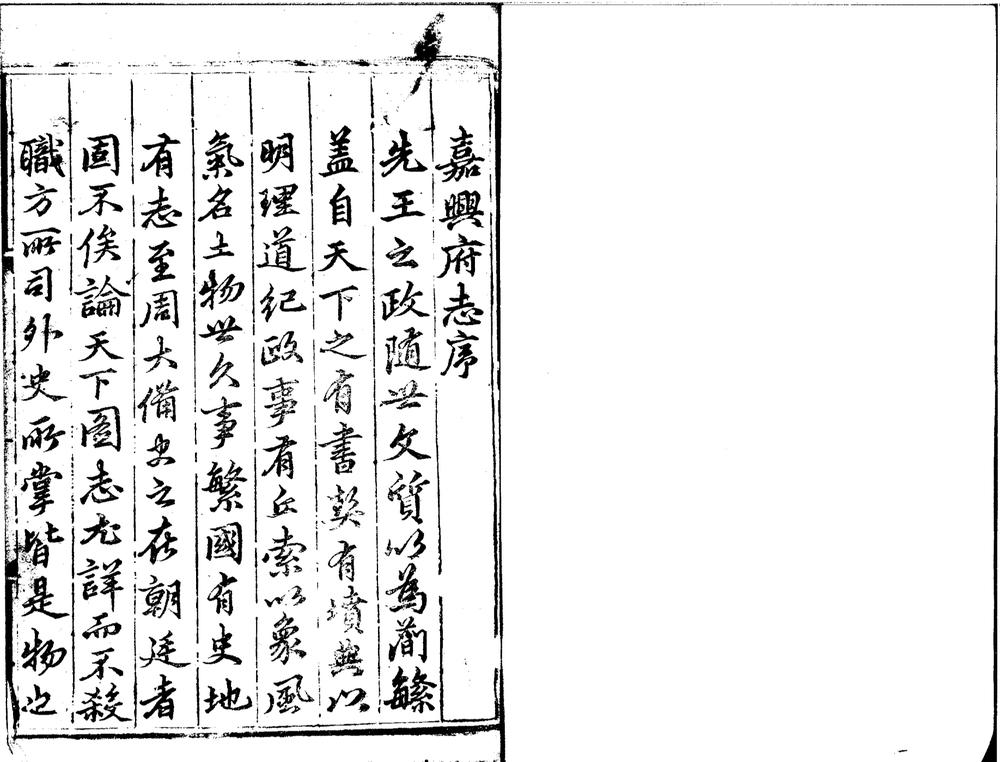 嘉興府志序
先王之政随世文質以為蕳繁
盖自天下之有書契有墳典以
明理道紀政事有丘索以象風
氣名土物世久事繁國有史地
有志至周大備史之在朝廷者
固不俟論天下圖志尤詳而不殺
職方所司外史所掌皆是物也